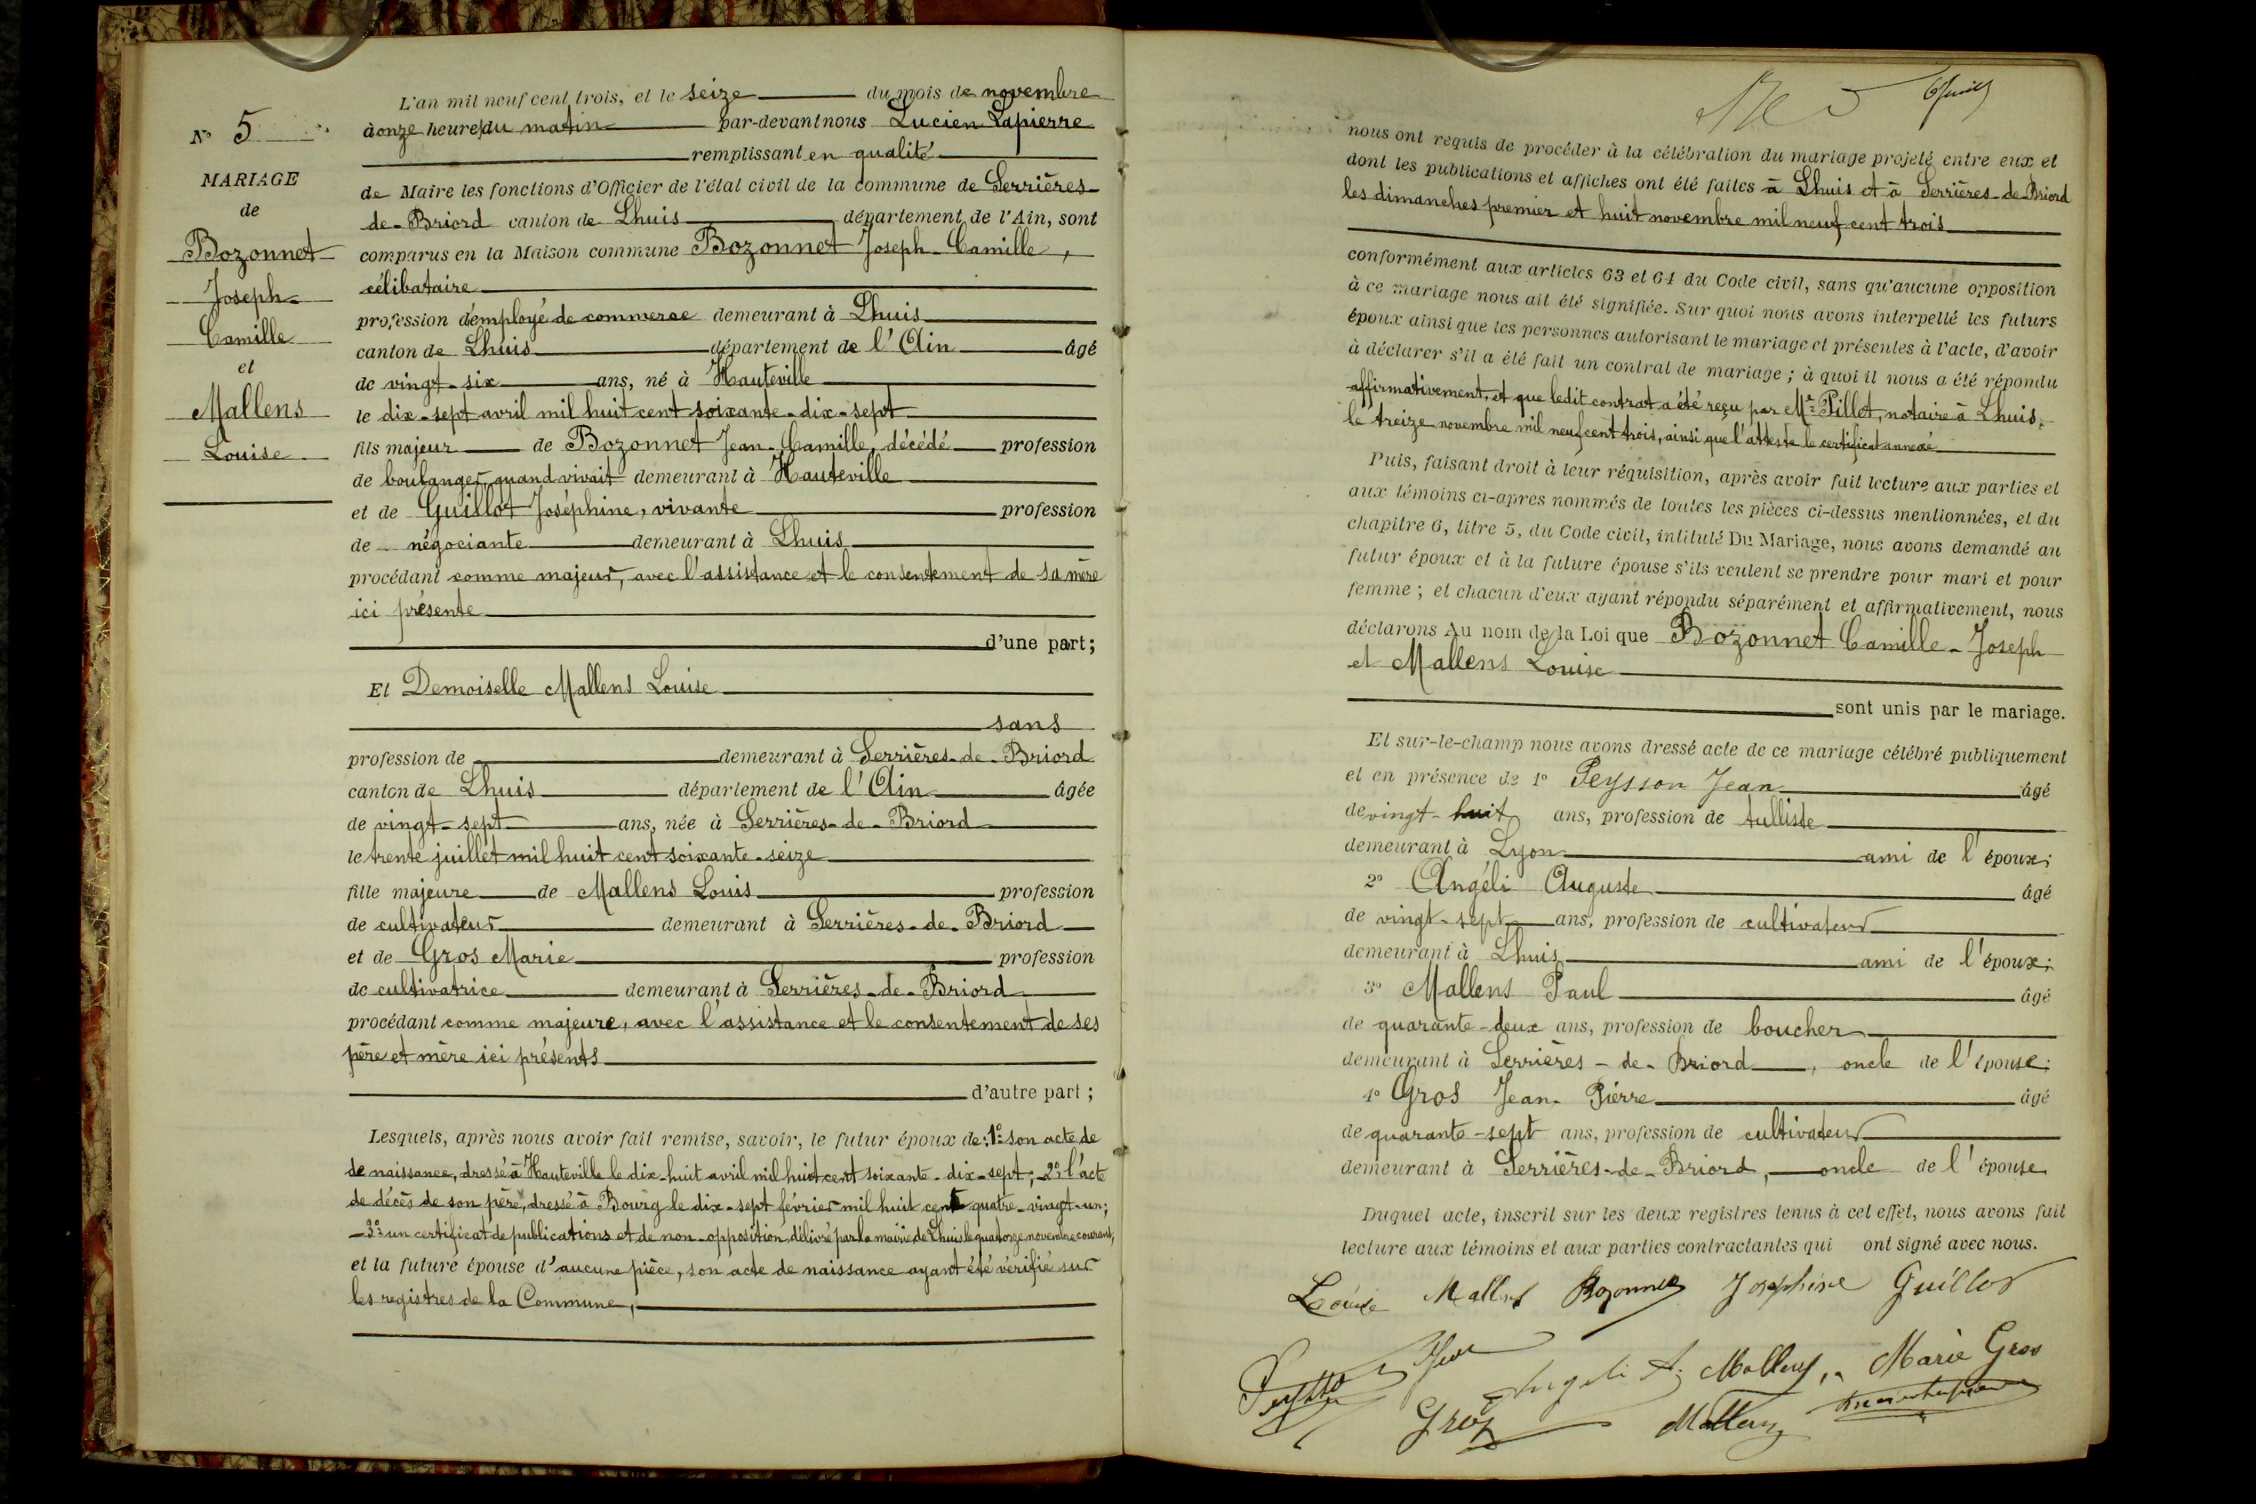 N° 5
MARIAGE
de
Bozonnet
Joseph
Camille
et
Mallens
Louise
L'an mil neuf cent trois, et le seize du mois de novembre
à onze heures du matin par-devant nous Lucien Lapierre
remplissant en qualité
de Maire les fonctions d'Officier de l'état civil de la commune de Serrières-
de-Briord canton de Lhuis département de l'Ain, sont
comparus en la Maison commune Bozonnet Joseph-Camille,
célibataire
profession d'employé de commerce demeurant à Lhuis
canton de Lhuis département de l'Ain âgé
de vingt-six ans, né à Hauteville
le dix-sept avril mil huit cent soixante-dix-sept
fils majeur de Bozonnet Jean-Camille, décédé profession
de boulanger quand vivait demeurant à Hauteville
et de Guillot Joséphine, vivante profession
de négociante demeurant à Lhuis
procédant comme majeur, avec l'assistance et le consentement de sa mère
ici présente
d'une part;
Et Demoiselle Mallens Louise
sans
profession de demeurant à Serrières-de-Briord
canton de Lhuis département de l'Ain âgée
de vingt-sept ans, née à Serrières-de-Briord
le trente juillet mil huit cent soixante-seize
fille majeure de Mallens Louis profession
de cultivateur demeurant à Serrières-de-Briord
et de Gros Marie profession
de cultivatrice demeurant à Serrières-de-Briord
procédant comme majeure, avec l'assistance et le consentement de ses
père et mère ici présents
d'autre part;
Lesquels, après nous avoir fait remise, savoir, le futur époux de: 1° son acte de
de naissance, dressé à Hauteville le dix-huit avril mil huit cent soixante-dix-sept; 2° l'acte
de décès de son père, dressé à Bourg le dix-sept février mil huit cent quatre-vingt-un;
3° un certificat de publications et de non-opposition, délivré par la mairie de Lhuis le quatorze novembre courant,
et la future épouse d'aucune pièce, son acte de naissance ayant été vérifié sur
les registres de la Commune,
nous ont requis de procéder à la célébration du mariage projeté entre eux et
dont les publications et affiches ont été faites à Lhuis et à Serrières-de-Briord
les dimanches premier et huit novembre mil neuf cent trois
conformément aux articles 63 et 64 du Code civil, sans qu'aucune opposition
à ce mariage nous ait été signifiée. Sur quoi nous avons interpellé les futurs
époux ainsi que les personnes autorisant le mariage et présentes à l'acte, d'avoir
à déclarer s'il a été fait un contrat de mariage; à quoi il nous a été répondu
affirmativement, et que ledit contrat a été reçu par Me Pillet, notaire à Lhuis,
le treize novembre mil neuf cent trois, ainsi que l'atteste le certificat annexé
Puis, faisant droit à leur réquisition, après avoir fait lecture aux parties et
aux témoins ci-apres nommés de toutes les pièces ci-dessus mentionnées, et du
chapitre 6, titre 5, du Code civil, intitulé Du Mariage, nous avons demandé au
futur époux et à la future épouse s'ils veulent se prendre pour mari et pour
femme; et chacun d'eux ayant répondu séparément et affirmativement, nous
déclarons Au nom de la Loi que Bozonnet Camille-Joseph
et Mallens Louise
sont unis par le mariage.
Et sur-le-champ nous avons dressé acte de ce mariage célébré publiquement
et en présence de 1° Peysson Jean âgé
de vingt-huit ans, profession de tulliste
demeurant à Lyon ami de l'époux;
2° Angéli Auguste âgé
de vingt-sept ans, profession de cultivateur
demeurant à Lhuis ami de l'époux;
3° Mallens Paul âgé
de quarante-deux ans, profession de boucher
demeurant à Serrières-de-Briord, oncle de l'épouse;
4° Gros Jean-Pierre âgé
de quarante-sept ans, profession de cultivateur
demeurant à Serrières-de-Briord, oncle de l'épouse
Duquel acte, inscrit sur les deux registres tenus à cet effet, nous avons fait
lecture aux témoins et aux parties contractantes qui ont signé avec nous.
Louise Mallens Bozonnet Joséphine Guillot
Peysson Angeli A. Mallens Marie Gros
Gros Mallens